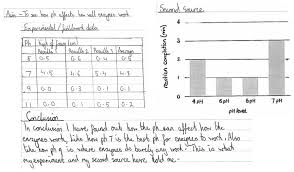 Aim - To see how pH affects how well enzymes work.
Experimental / fieldwork data
Ph
Results 1 Results 2 Results 3 Average
5 0.5 0.6 0.4 0.5
7 4.5 4.6 5.4 4.8
9 0.0 0.3 0.1 0.1
11 0.0 0.1 0.5 0.2
Conclusion
In conclusion I have found out how the ph can affect how the
enzymes work, like how ph 7 is the best ph for enzymes to work. Also
like how ph 9 is where enzymes do barely any work. This is what
my experiment and my second source have told me.
Second Source
Reaction completion (mm)
4
3
2
1
0
4 pH 5 pH 6 pH 7 pH
pH level